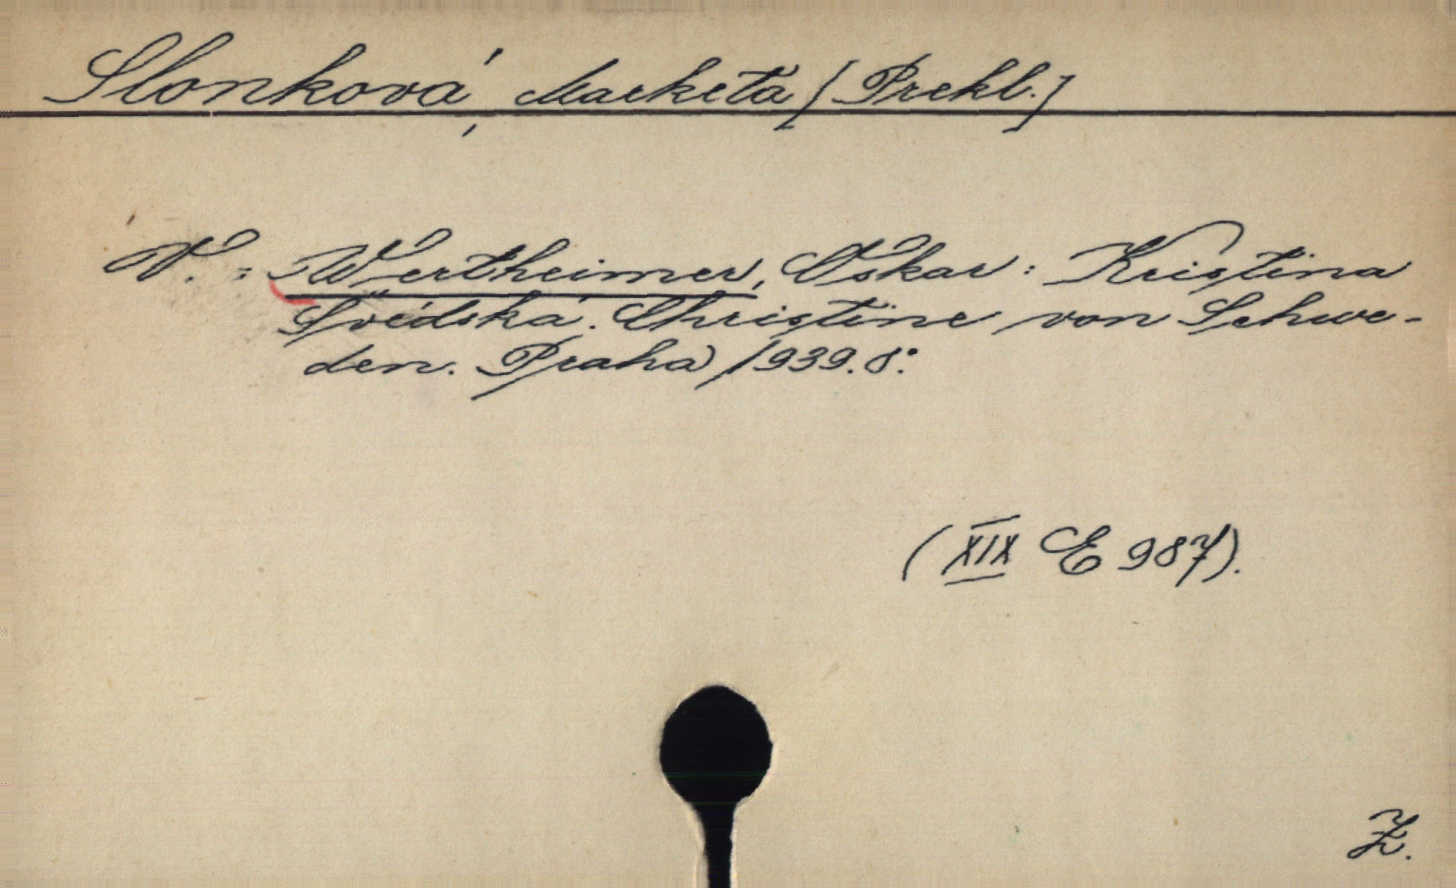 Slonková, Marketa [Prekl.]
V.: Wertheimer, Oskar: Kristina
Švédská. Christine von Schwe-
den. Praha 1939. 8°.
(XIX E 987).
Z.